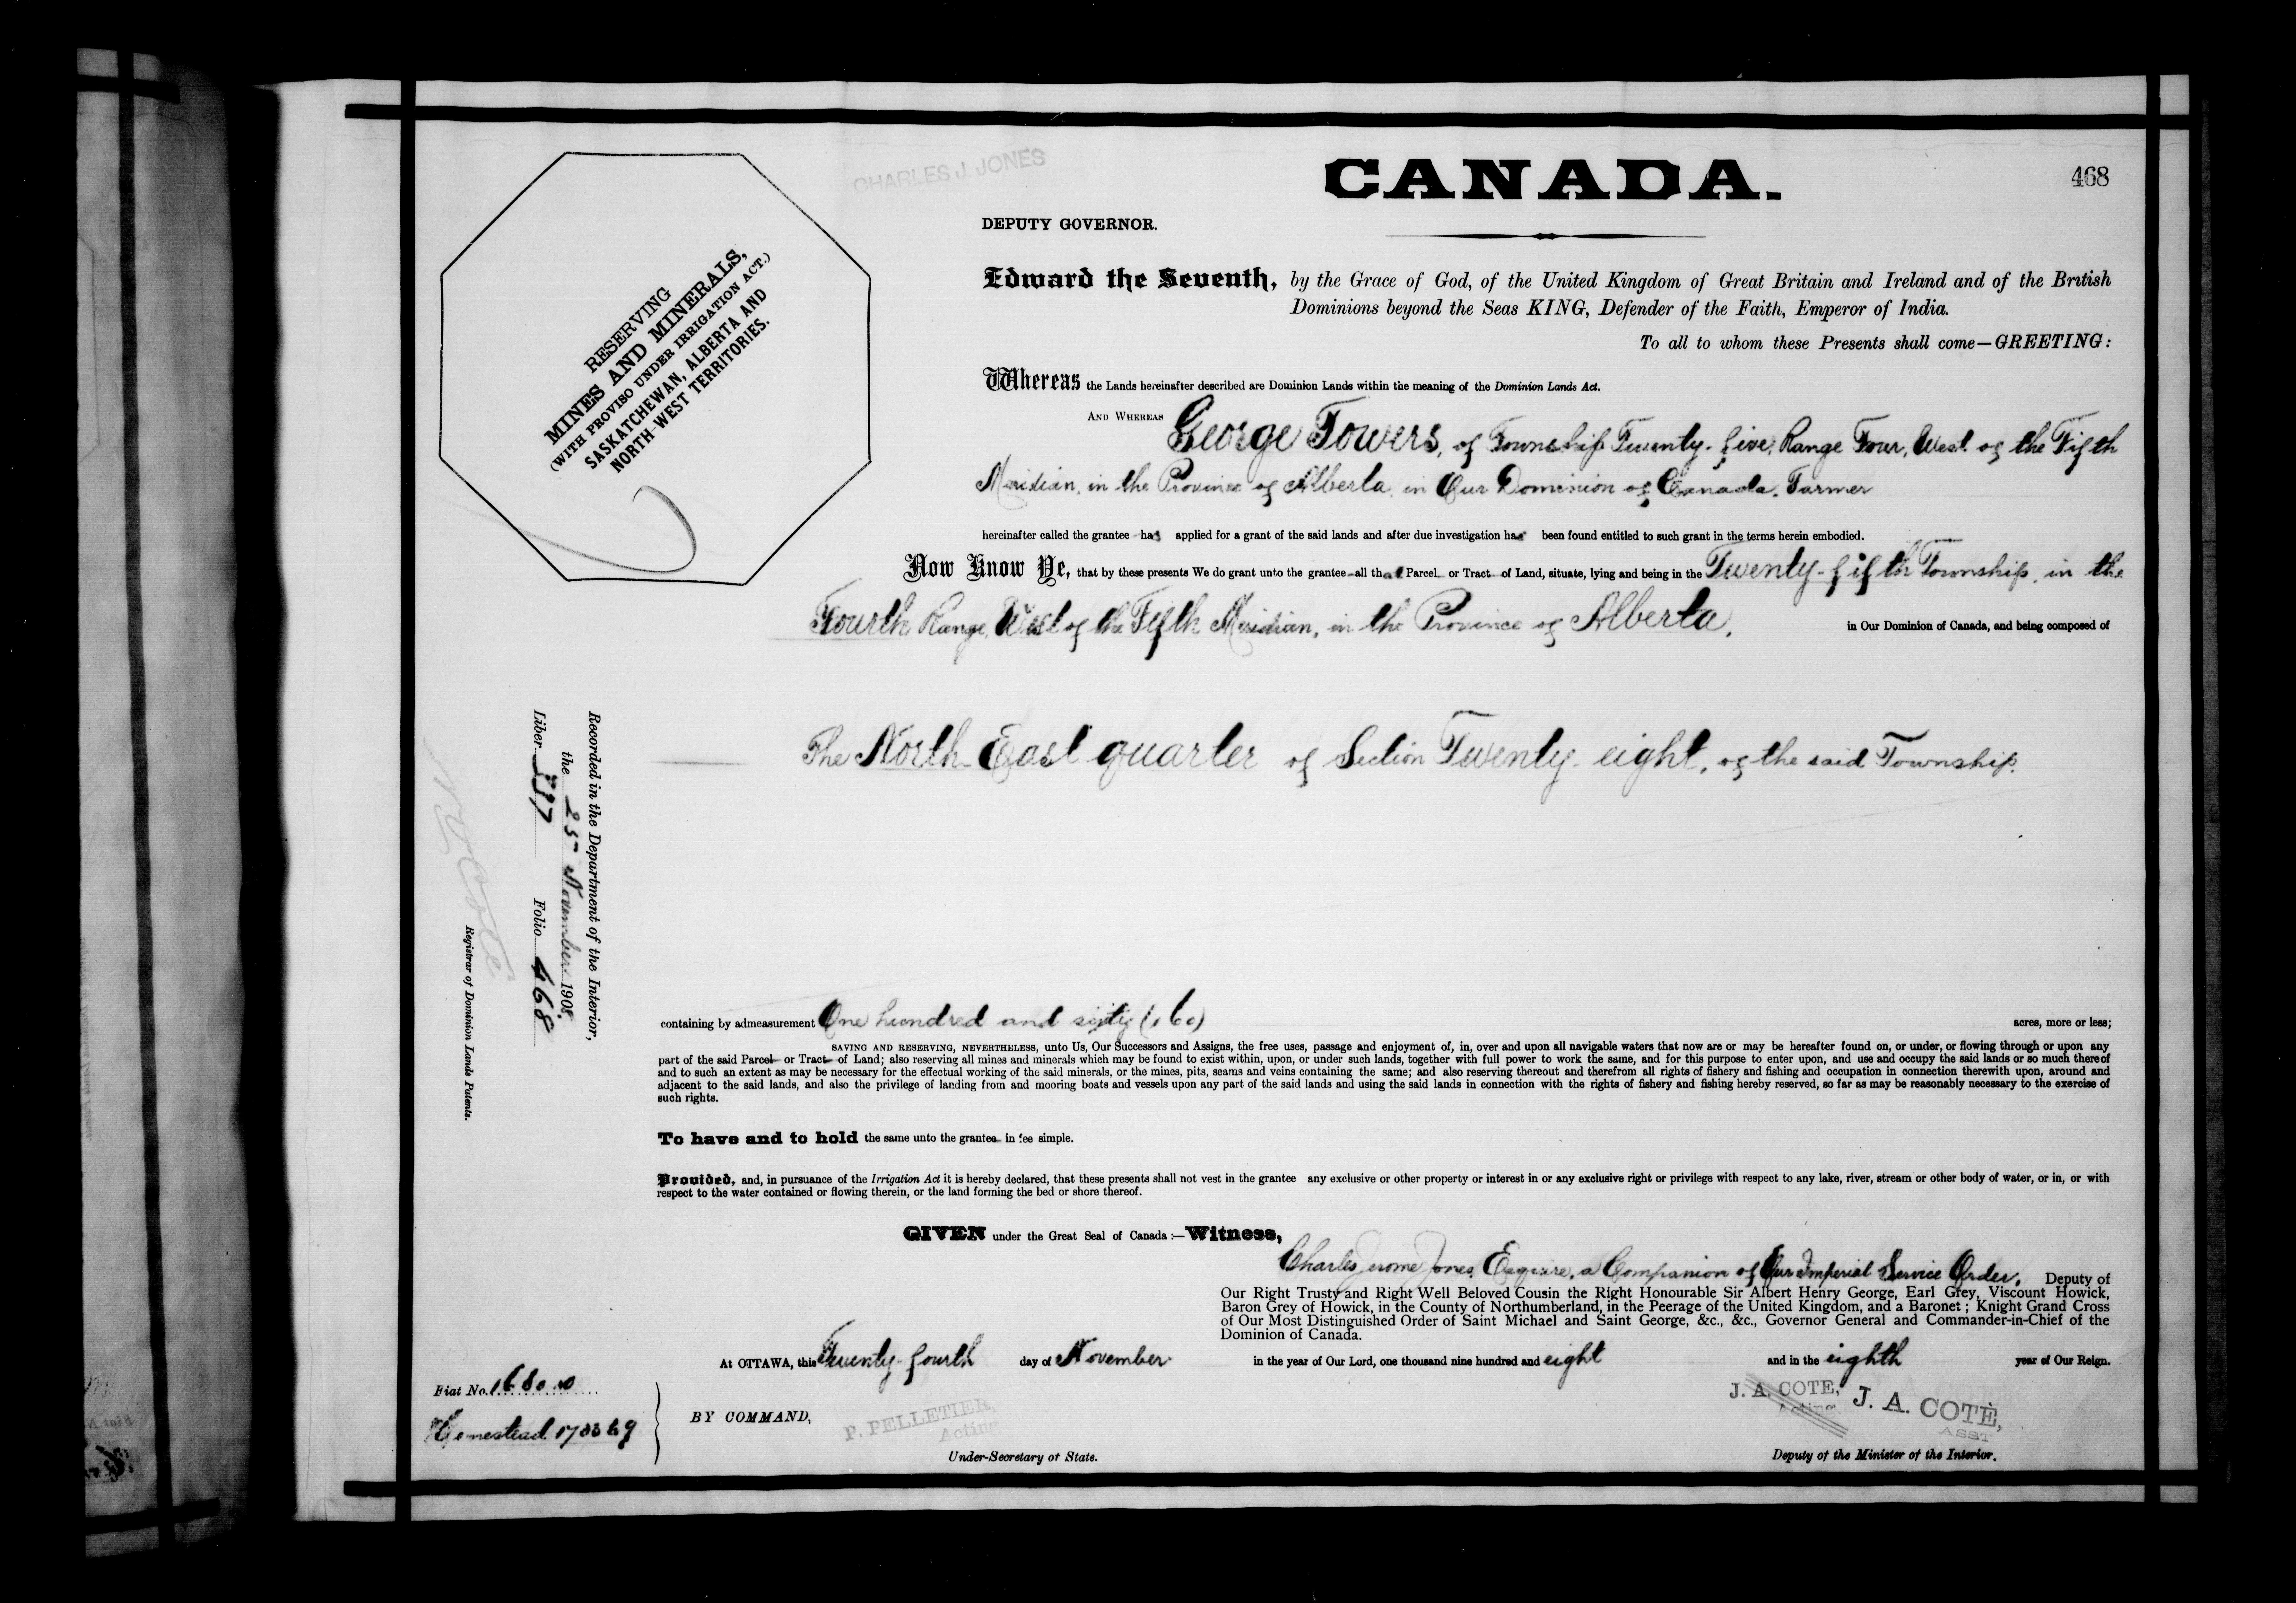 CHARLES J. JONES
CANADA.
468
DEPUTY GOVERNOR.
RESERVING
MINES AND MINERALS,
(WITH PROVISO UNDER IRRIGATION ACT.)
SASKATCHEWAN, ALBERTA AND
NORTH-WEST TERRITORIES.
Edward the Seventh, by the Grace of God, of the United Kingdom of Great Britain and Ireland and of the British
Dominions beyond the Seas KING, Defender of the Faith, Emperor of India.
To all to whom these Presents shall come—GREETING:
Whereas the Lands hereinafter described are Dominion Lands within the meaning of the Dominion Lands Act.
AND WHEREAS George Towers, of Township Twenty-five, Range Four, West of the Fifth
Meridian, in the Province of Alberta, in Our Dominion of Canada, Farmer
hereinafter called the grantee has applied for a grant of the said lands and after due investigation has been found entitled to such grant in the terms herein embodied.
Now Know Ye, that by these presents We do grant unto the grantee all that Parcel or Tract of Land, situate, lying and being in the Twenty-fifth Township, in the
Fourth Range, West of the Fifth Meridian, in the Province of Alberta, in Our Dominion of Canada, and being composed of
The North East quarter of Section Twenty-eight, of the said Township.
Recorded in the Department of the Interior,
the 25 November 1908.
Liber Folio 468
Registrar of Dominion Lands Patents.
containing by admeasurement One hundred and sixty (160) acres, more or less;
SAVING AND RESERVING, NEVERTHELESS, unto Us, Our Successors and Assigns, the free uses, passage and enjoyment of, in, over and upon all navigable waters that now are or may be hereafter found on, or under, or flowing through or upon any
part of the said Parcel or Tract of Land; also reserving all mines and minerals which may be found to exist within, upon, or under such lands, together with full power to work the same, and for this purpose to enter upon, and use and occupy the said lands or so much thereof
and to such an extent as may be necessary for the effectual working of the said minerals, or the mines, pits, seams and veins containing the same; and also reserving thereout and therefrom all rights of fishery and fishing and occupation in connection therewith upon, around and
adjacent to the said lands, and also the privilege of landing from and mooring boats and vessels upon any part of the said lands and using the said lands in connection with the rights of fishery and fishing hereby reserved, so far as may be reasonably necessary to the exercise of
such rights.
To have and to hold the same unto the grantee in fee simple.
Provided, and, in pursuance of the Irrigation Act it is hereby declared, that these presents shall not vest in the grantee any exclusive or other property or interest in or any exclusive right or privilege with respect to any lake, river, stream or other body of water, or in, or with
respect to the water contained or flowing therein, or the land forming the bed or shore thereof.
GIVEN under the Great Seal of Canada:—Witness,
Charles Jerome Jones, Esquire, a Companion of Our Imperial Service Order, Deputy of
Our Right Trusty and Right Well Beloved Cousin the Right Honourable Sir Albert Henry George, Earl Grey, Viscount Howick,
Baron Grey of Howick, in the County of Northumberland, in the Peerage of the United Kingdom, and a Baronet; Knight Grand Cross
of Our Most Distinguished Order of Saint Michael and Saint George, &c., &c., Governor General and Commander-in-Chief of the
Dominion of Canada.
At OTTAWA, this Twenty-fourth day of November in the year of Our Lord, one thousand nine hundred and eight and in the eighth year of Our Reign.
Fiat No.
Homestead
BY COMMAND,
P. PELLETIER,
Acting
Under-Secretary of State.
J. A. COTE,
Acting.
J. A. COTE,
ASST
Deputy of the Minister of the Interior.